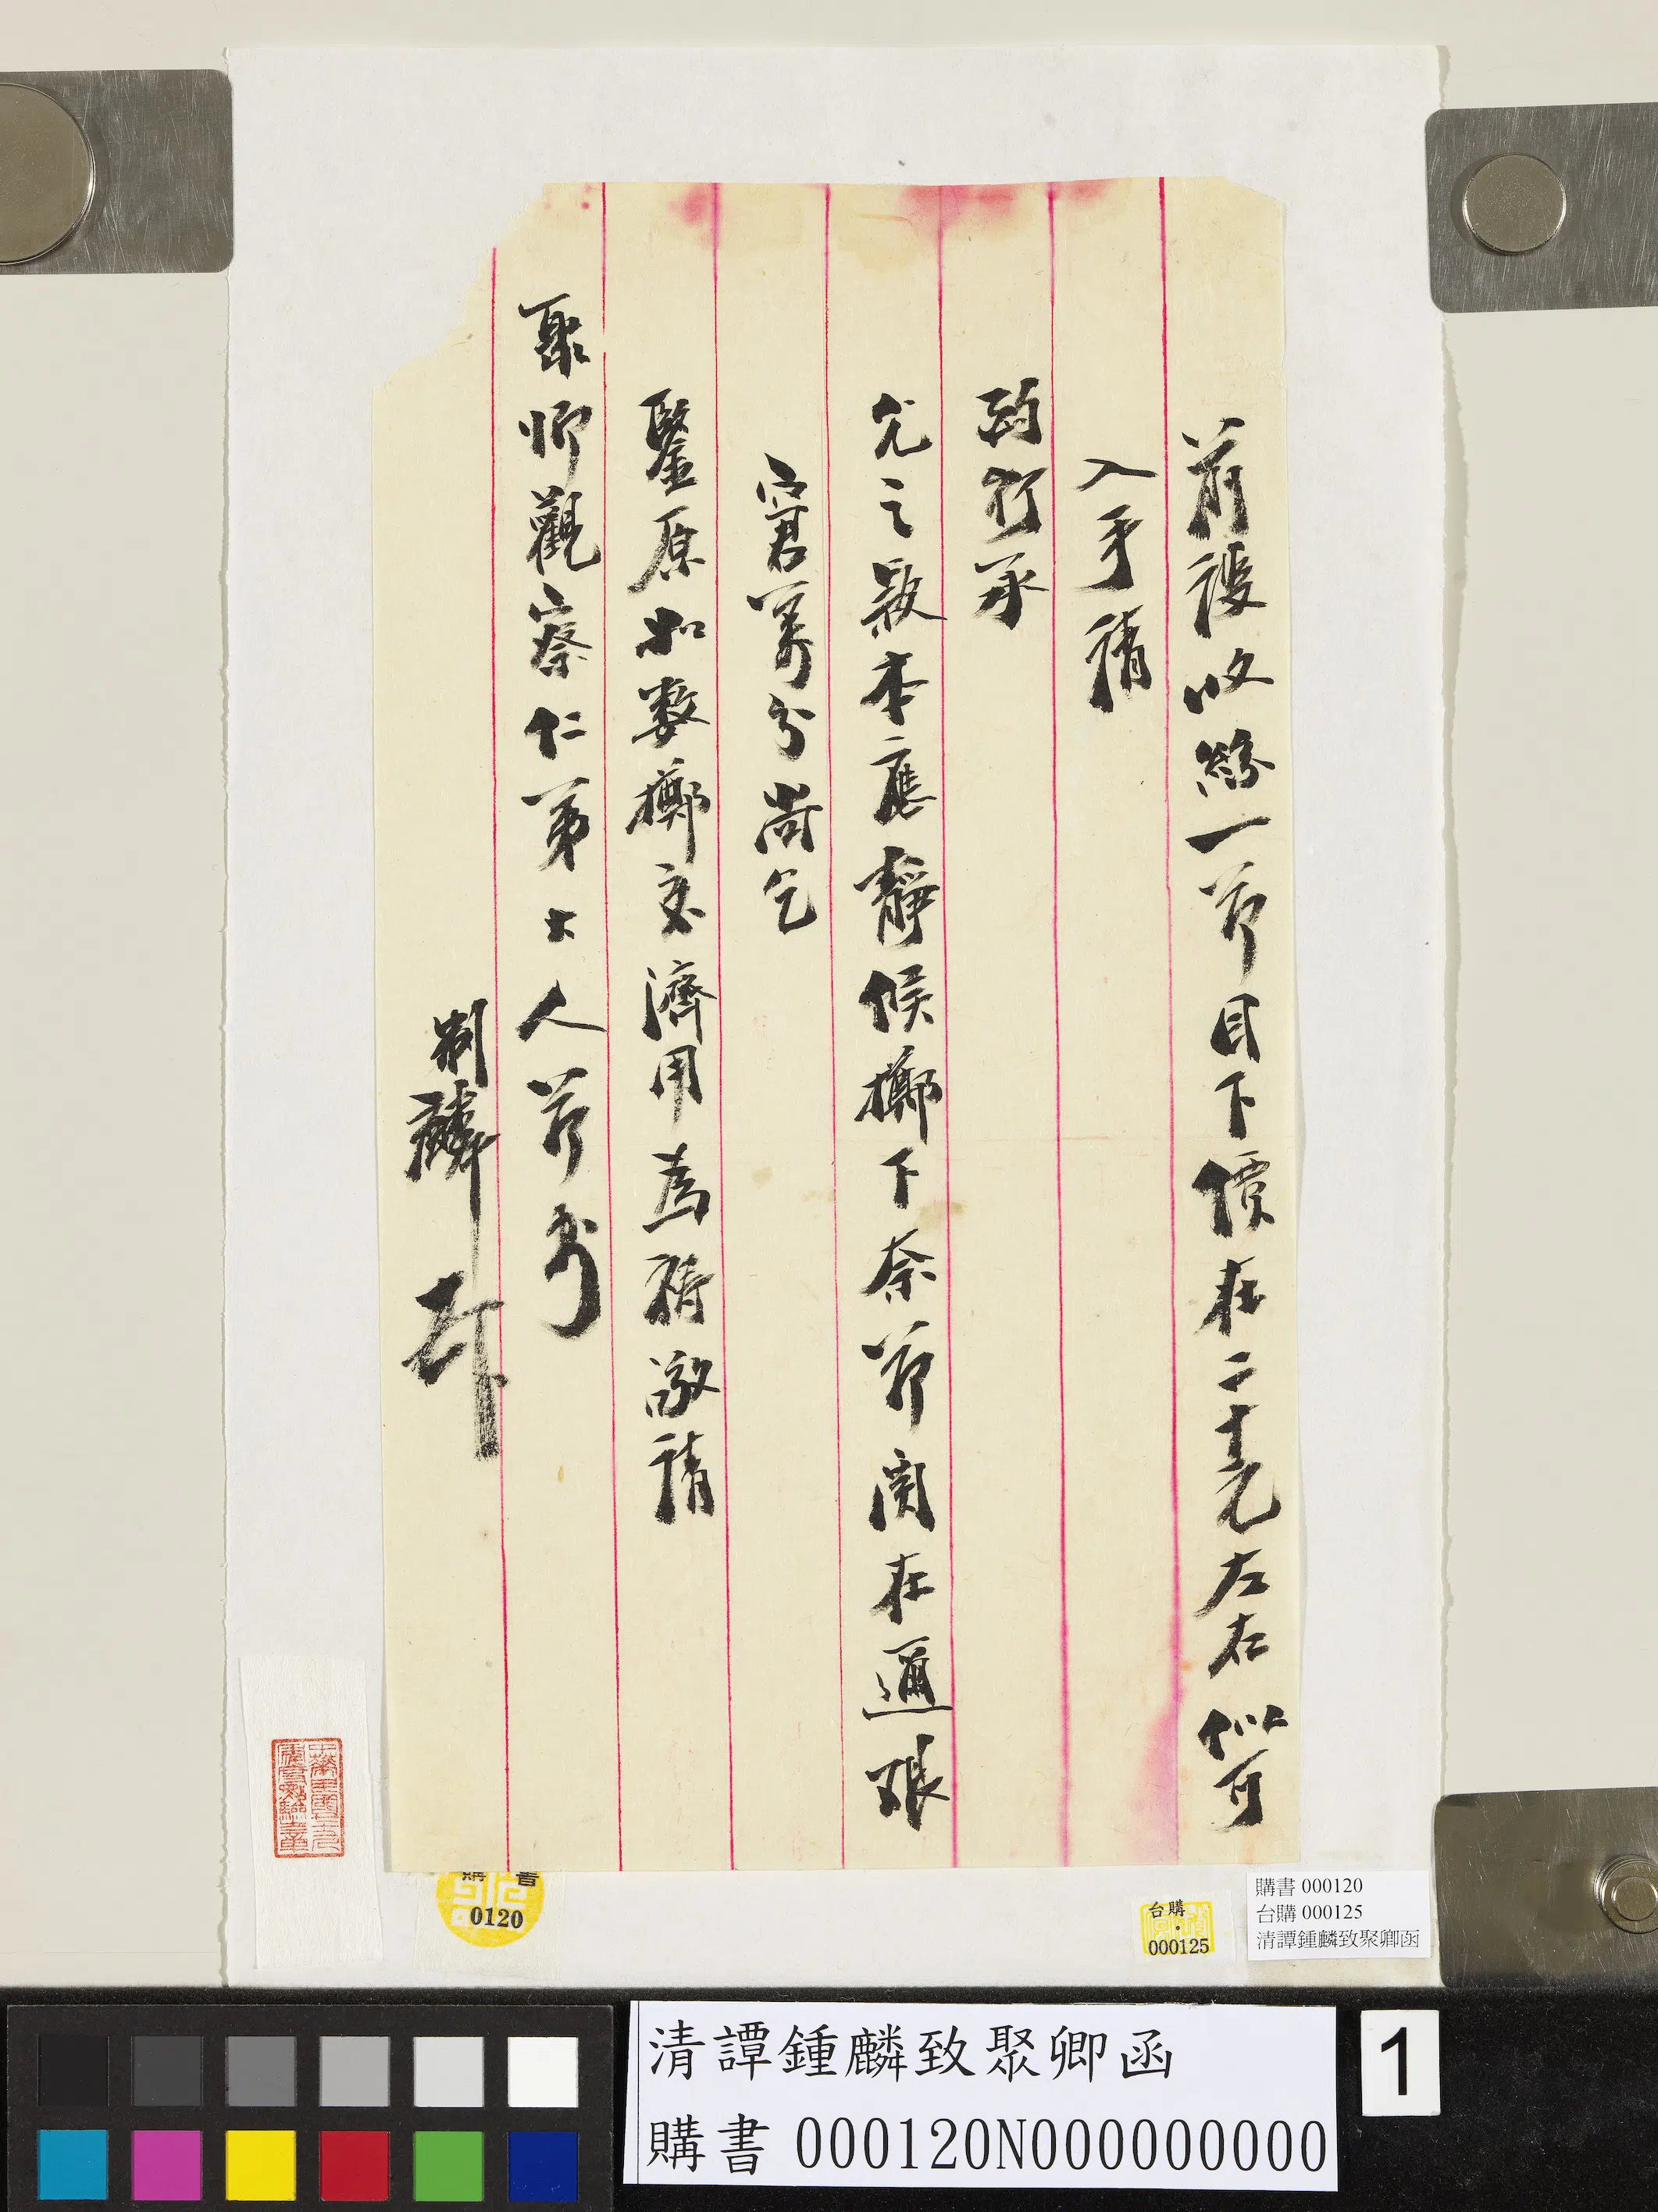 前收一節目下價在二十元左右似可
入手請
酌行承
允之款本應靜候擲下奈節関在邇艱
窘萬分尚乞
鑒原如數擲交濟用為禱敬請
聚卿觀察仁弟大人節安
制麟
購書
0120
台購
000125
購書 000120
台購 000125
清譚鍾麟致聚卿函
清譚鍾麟致聚卿函
購書 000120N000000000
1